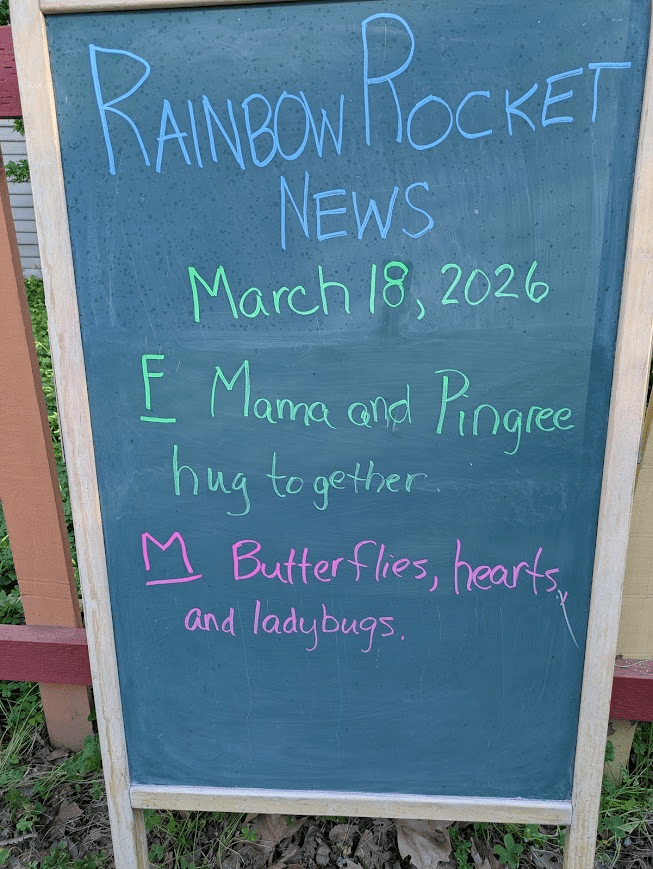 RAINBOW ROCKET
NEWS
March 18, 2026
F Mama and Pingree
hug together.
M Butterflies, hearts,
and ladybugs.